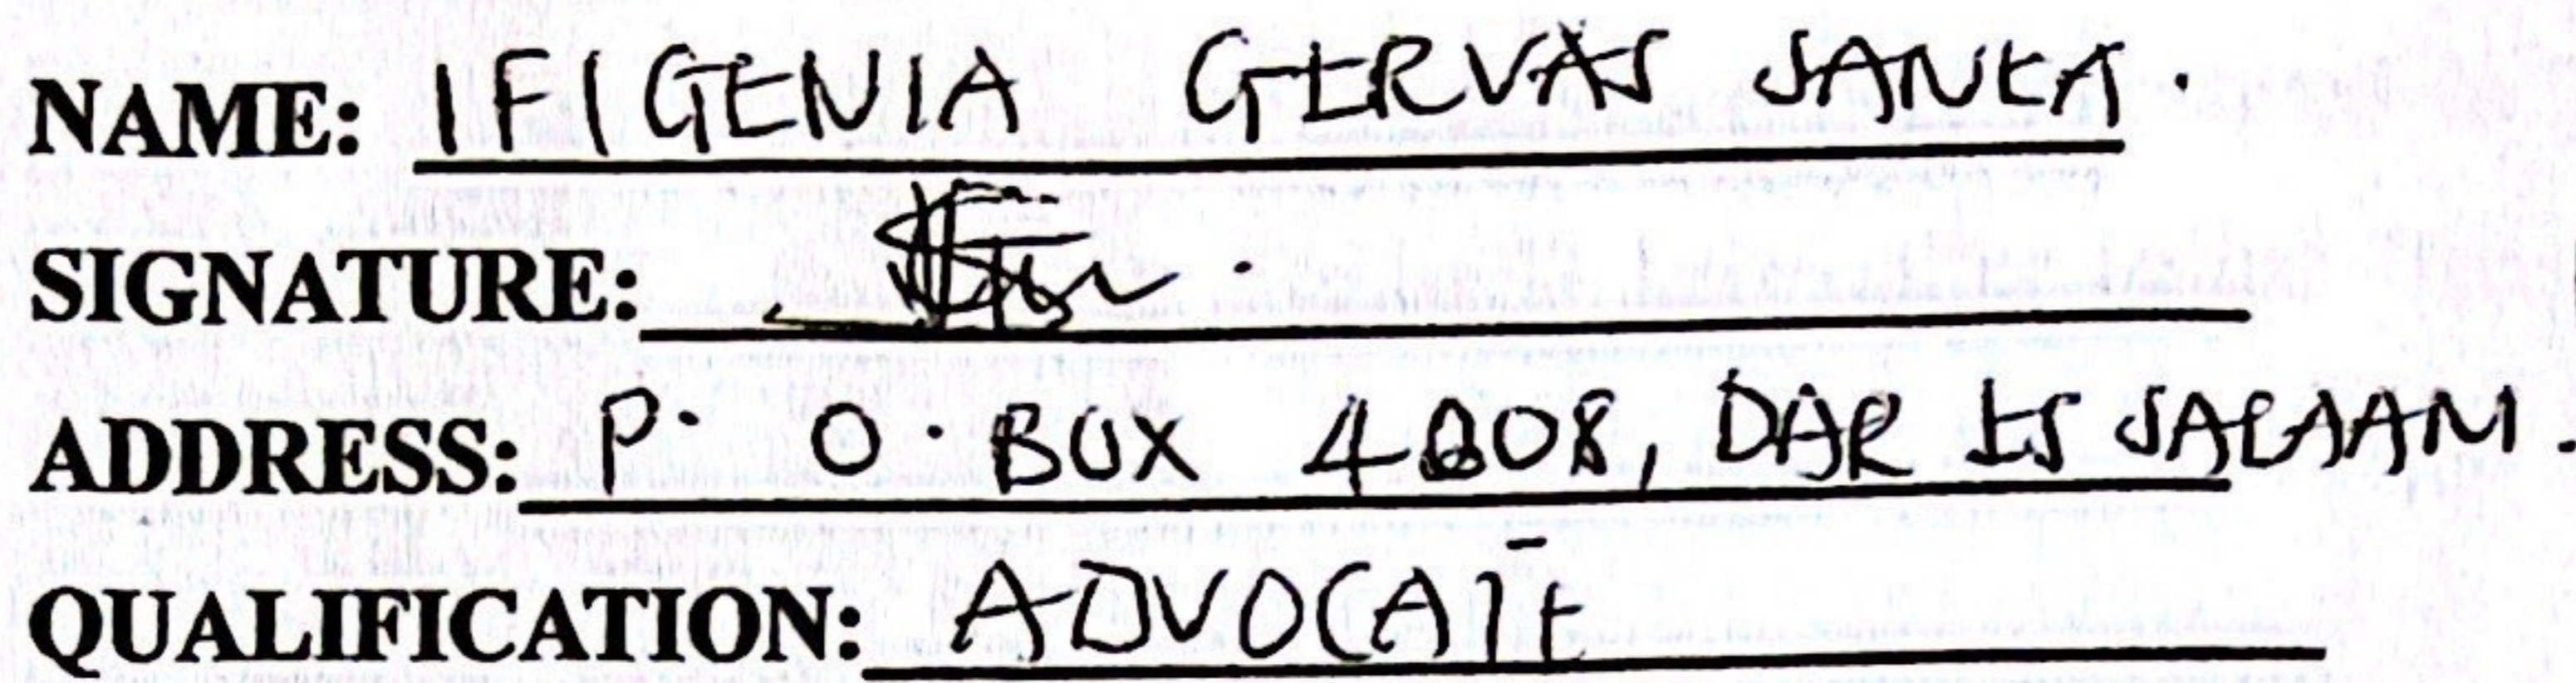 NAME: IFIGENIA GERVAS SANEA.
SIGNATURE:
ADDRESS: P. O. BOX 4208, DAR ES SALAAM.
QUALIFICATION: ADVOCATE